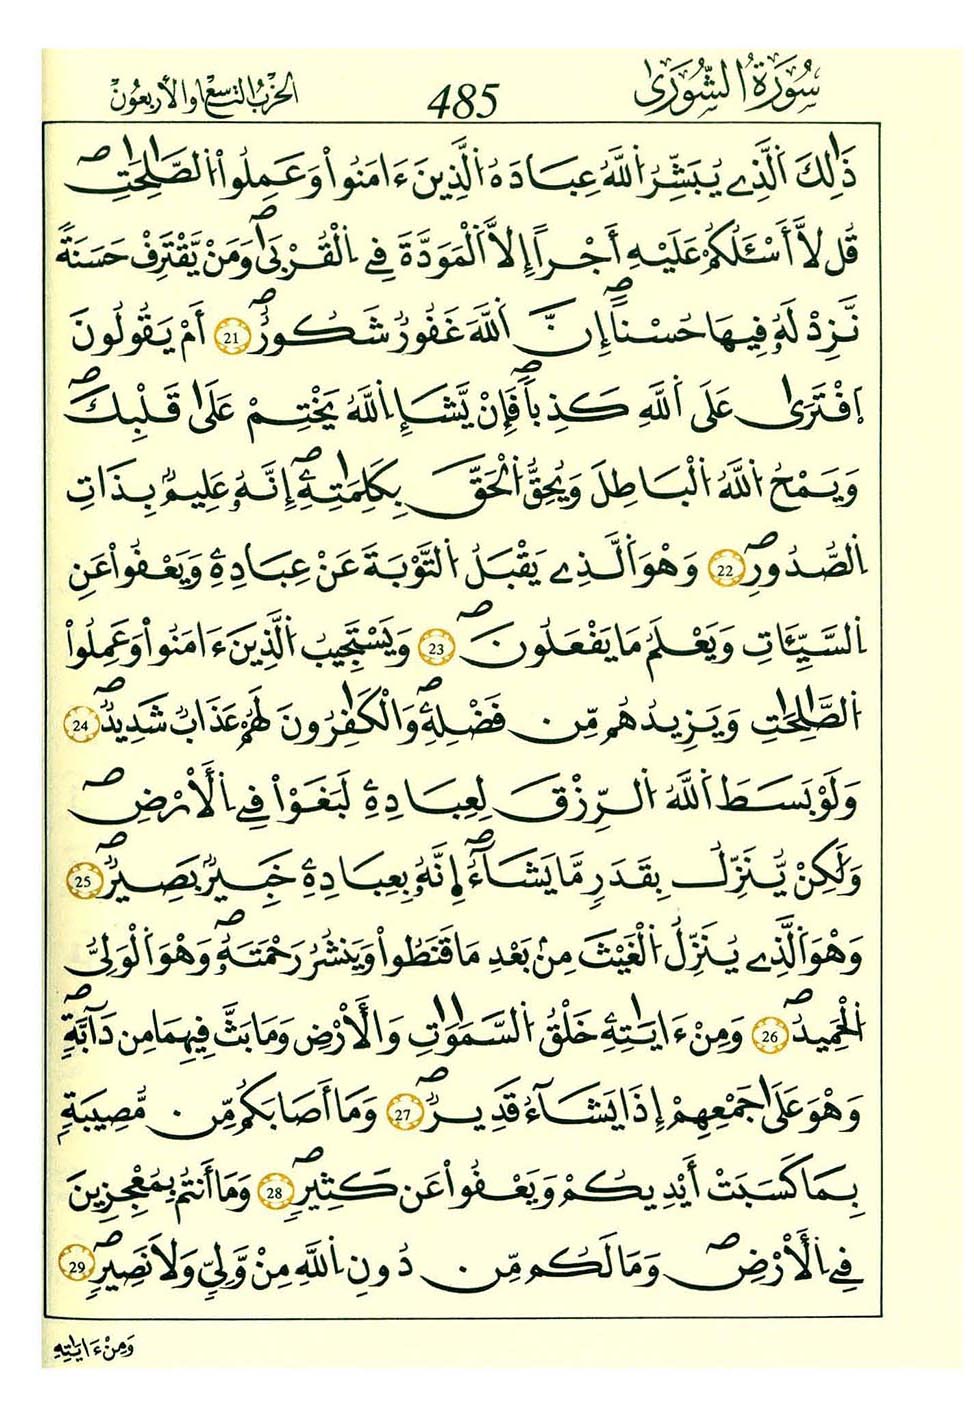 سُورَةُ الشُّورَىٰ
485
الحِزْبُ التَّاسِعُ وَالأَرْبَعُونَ
ذَٰلِكَ اَلَّذِے يُبَشِّرُ اُللَّهُ عِبَادَهُ اُلَّذِينَ ءَامَنُواْ وَعَمِلُواْ اُلصَّٰلِحَٰتِۖ
قُل لَّآ أَسْـَٔلُكُمْ عَلَيْهِ أَجْراً إِلَّا اَلْمَوَدَّةَ فِے اِلْقُرْبَىٰۖ وَمَنْ يَّقْتَرِفْ حَسَنَةً
نَّزِدْ لَهُۥ فِيهَا حُسْناًۖ إِنَّ اَللَّهَ غَفُورٌ شَكُورٌۖ 21 أَمْ يَقُولُونَ
اَ۪فْتَرَىٰ عَلَى اَللَّهِ كَذِباًۖ فَإِنْ يَّشَإِ اِللَّهُ يَخْتِمْ عَلَىٰ قَلْبِكَۖ
وَيَمْحُ اُللَّهُ اُلْبَٰطِلَ وَيُحِقُّ اُلْحَقَّ بِكَلِمَٰتِهِۦٓۖ إِنَّهُۥ عَلِيمٌۢ بِذَاتِ
اِلصُّدُورِۖ 22 وَهْوَ اَلَّذِے يَقْبَلُ اُلتَّوْبَةَ عَنْ عِبَادِهِۦ وَيَعْفُواْ عَنِ
اِلسَّيِّـَٔاتِ وَيَعْلَمُ مَا يَفْعَلُونَۖ 23 وَيَسْتَجِيبُ اُلَّذِينَ ءَامَنُواْ وَعَمِلُواْ
اُلصَّٰلِحَٰتِ وَيَزِيدُهُم مِّن فَضْلِهِۦۖ وَالْكَٰفِرُونَ لَهُمْ عَذَابٌ شَدِيدٌۖ 24
وَلَوْ بَسَطَ اَللَّهُ اُلرِّزْقَ لِعِبَادِهِۦ لَبَغَوْاْ فِے اِلْأَرْضِۖ
وَلَٰكِنْ يُّنَزِّلُ بِقَدَرٍ مَّا يَشَآءُۖ إِنَّهُۥ بِعِبَادِهِۦ خَبِيرٌۢ بَصِيرٌۖ 25
وَهْوَ اَلَّذِے يُنَزِّلُ اُلْغَيْثَ مِنۢ بَعْدِ مَا قَنَطُواْ وَيَنشُرُ رَحْمَتَهُۥۖ وَهْوَ اَلْوَلِيُّ
اُلْحَمِيدُۖ 26 وَمِنْ ءَايَٰتِهِۦ خَلْقُ اُلسَّمَٰوَٰتِ وَالْأَرْضِ وَمَا بَثَّ فِيهِمَا مِن دَآبَّةٍۖ
وَهْوَ عَلَىٰ جَمْعِهِمْ إِذَا يَشَآءُ قَدِيرٌۖ 27 وَمَآ أَصَٰبَكُم مِّن مُّصِيبَةِۭ
بِمَا كَسَبَتْ أَيْدِيكُمْ وَيَعْفُواْ عَن كَثِيرٍۖ 28 وَمَآ أَنتُم بِمُعْجِزِينَ
فِے اِلْأَرْضِۖ وَمَا لَكُم مِّن دُونِ اِللَّهِ مِنْ وَّلِيٍّ وَلَا نَصِيرٍۖ 29
وَمِنْ ءَايَٰتِهِ